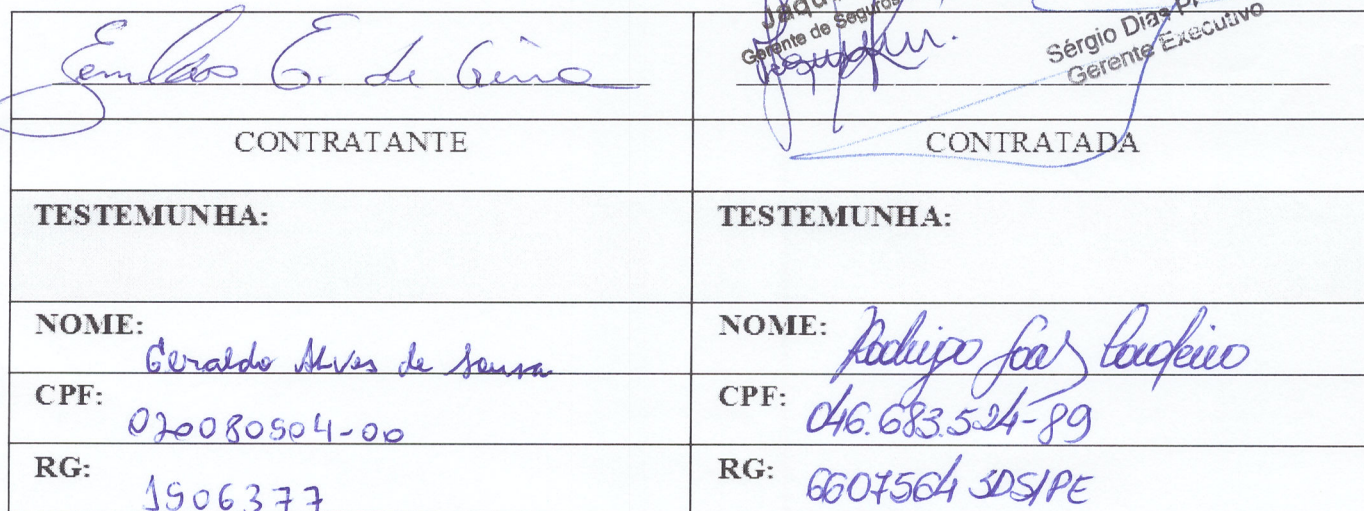 Gerente de Seguros
Sérgio Dias
Gerente Executivo
CONTRATANTE
CONTRATADA
TESTEMUNHA:
TESTEMUNHA:
NOME: Geraldo Alves de Sousa
NOME: Rodrigo Cordeiro
CPF: 020080504-00
CPF: 046.683.524-89
RG: 1906377
RG: 6607564 SDS/PE